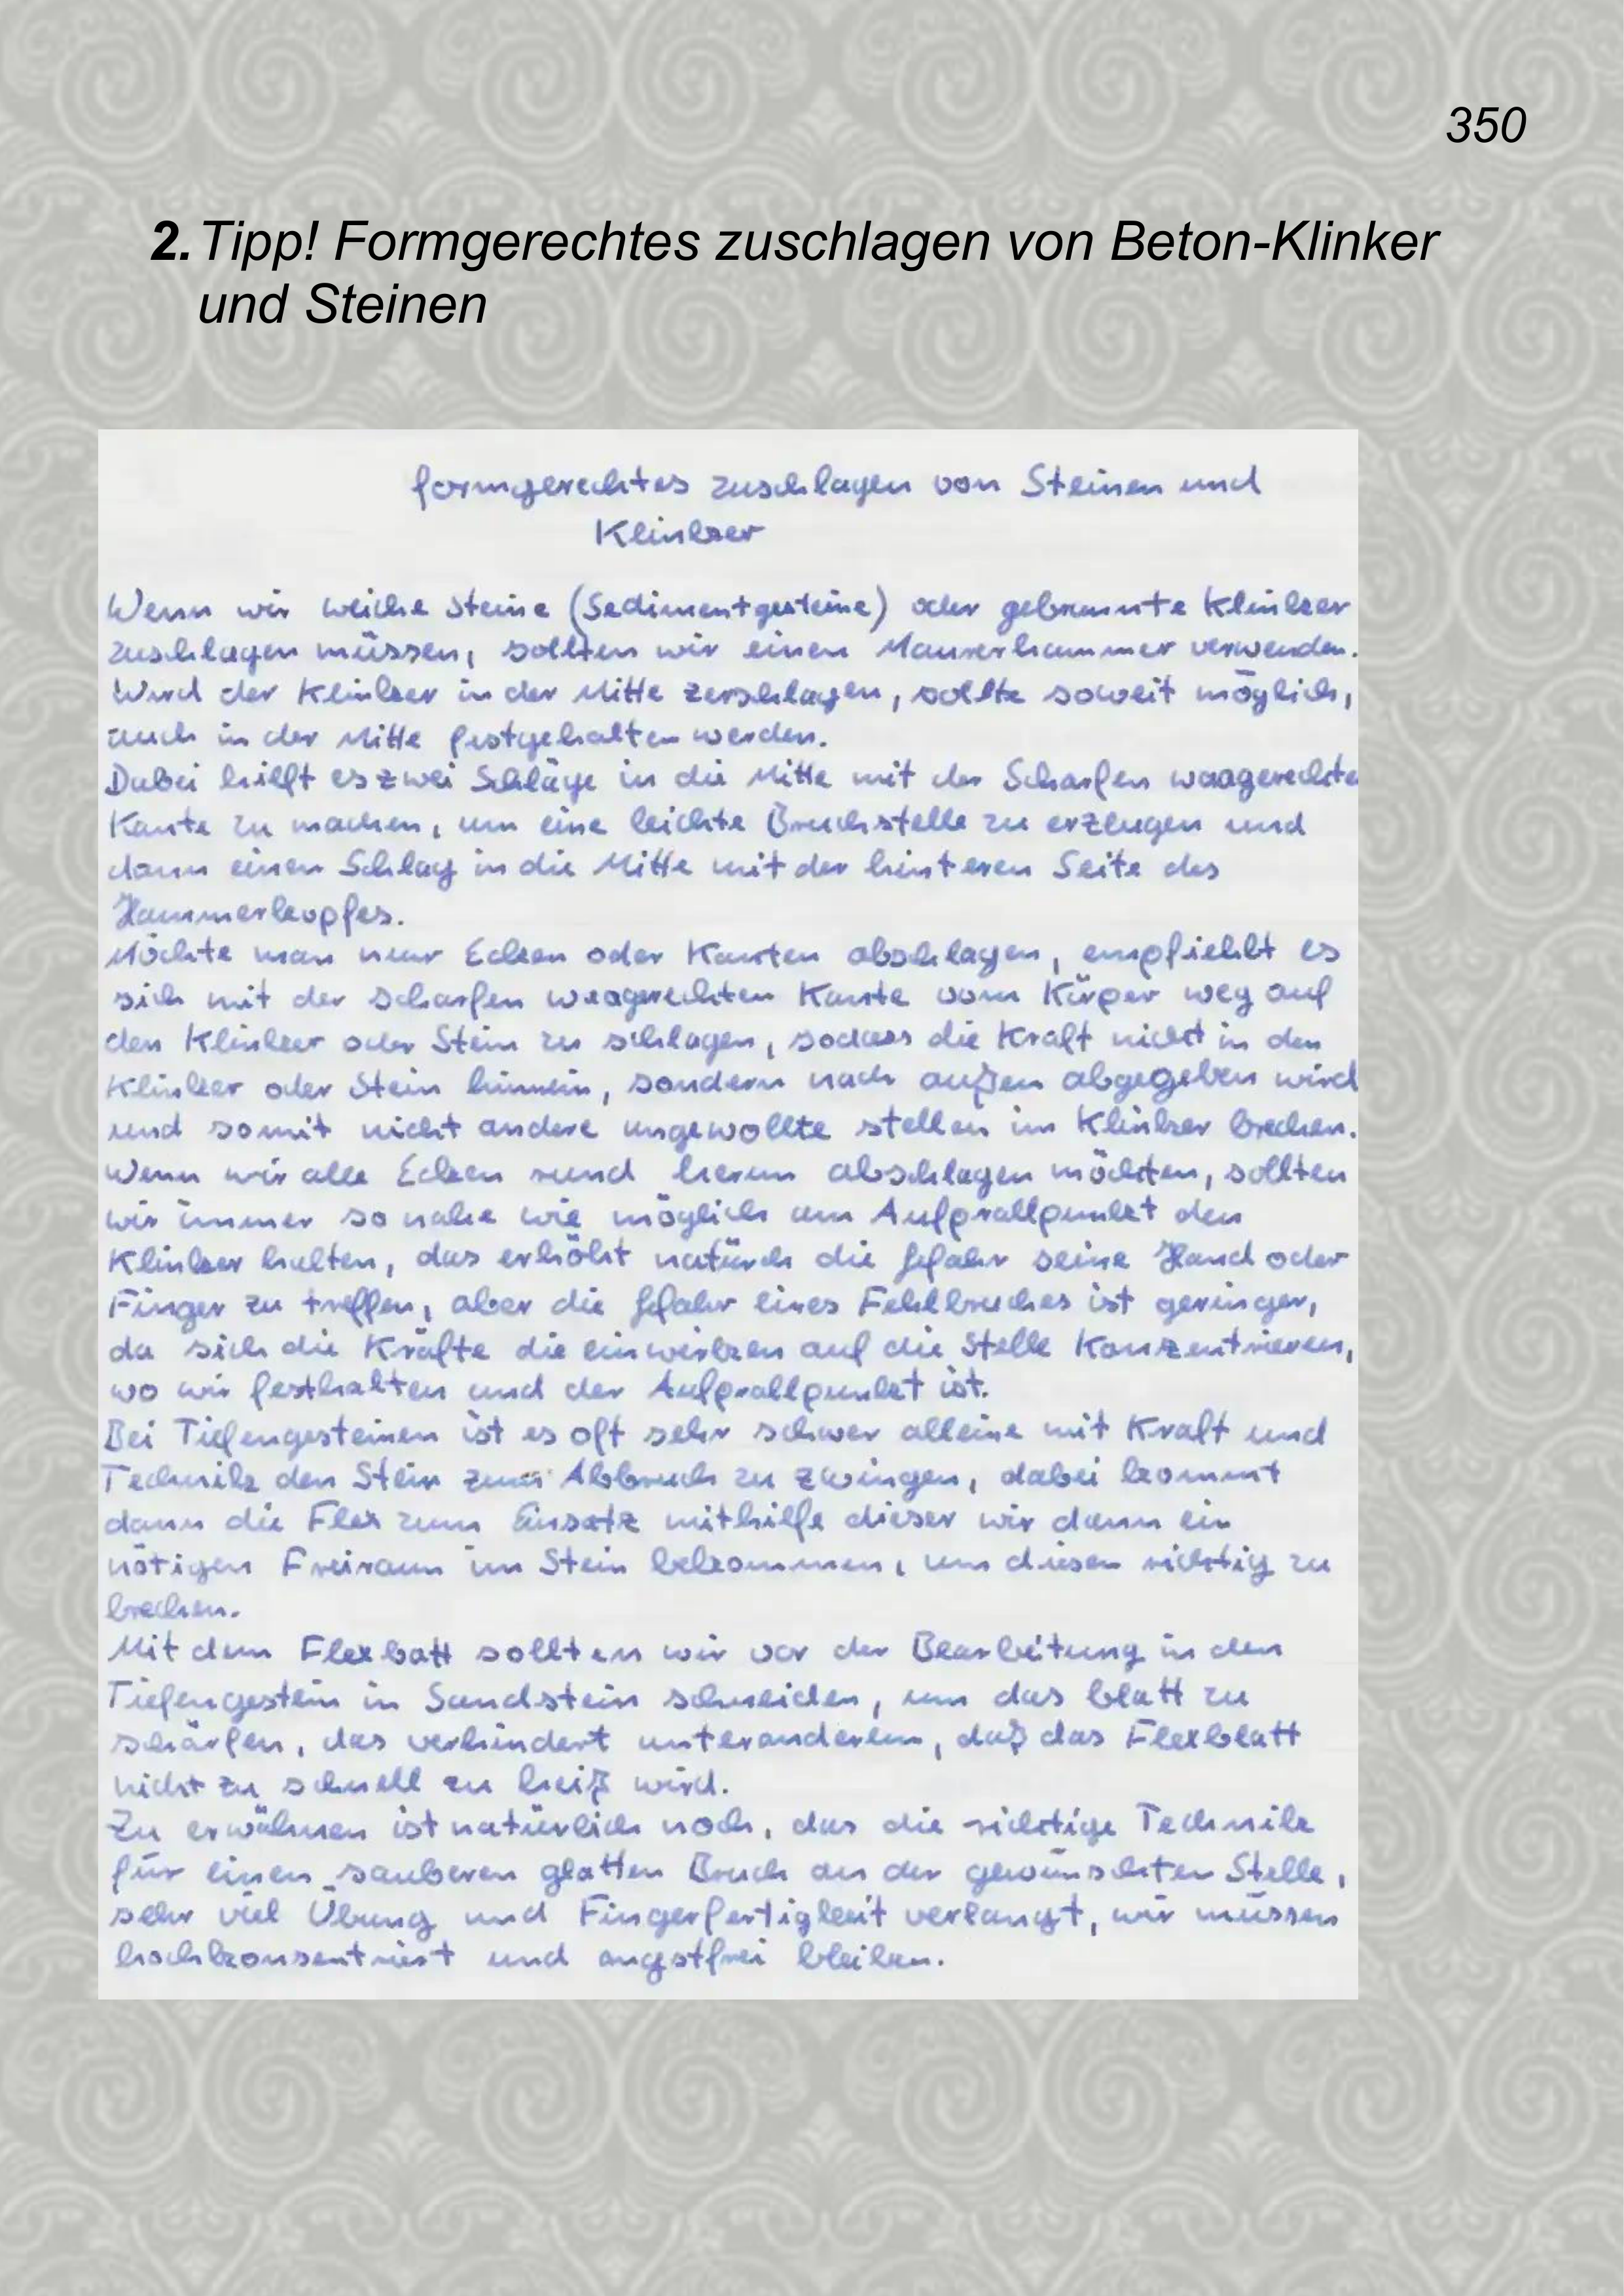 350
2. Tipp! Formgerechtes zuschlagen von Beton-Klinker
und Steinen
formgerechtes zuschlagen von Steinen und
Klinker
Wenn wir weiche Steine (Sedimentgesteine) oder gebrannte Klinker
zuschlagen müssen, sollten wir einen Maurerhammer verwenden.
Wird der Klinker in der Mitte zerschlagen, sollte soweit möglich,
auch in der Mitte festgehalten werden.
Dabei hilft es zwei Schläge in die Mitte mit der Scharfen waagerechte
Kante zu machen, um eine leichte Bruchstelle zu erzeugen und
dann einen Schlag in die Mitte mit der hinteren Seite des
Hammerkopfes.
Möchte man nur Ecken oder Kanten abschlagen, empfiehlt es
sich mit der scharfen waagerechten Kante vom Körper weg auf
den Klinker oder Stein zu schlagen, sodass die Kraft nicht in den
Klinker oder Stein hinnein, sondern nach außen abgegeben wird
und somit nicht andere ungewollte stellen im Klinker brechen.
Wenn wir alle Ecken rund herum abschlagen möchten, sollten
wir immer so nahe wie möglich am Aufprallpunkt den
Klinker halten, das erhöht natürch die gefahr seine Hand oder
Finger zu treffen, aber die gefahr eines Fehlbruches ist geringer,
da sich die Kräfte die einwirken auf die Stelle Konzentrieren,
wo wir festhalten und der Aufprallpunkt ist.
Bei Tiefengesteinen ist es oft sehr schwer alleine mit Kraft und
Technik den Stein zum Abbruch zu zwingen, dabei kommt
dann die Flex zum Einsatz mithilfe dieser wir dann ein
nötigen Freiraum im Stein bekommen, um diesen richtig zu
brechen.
Mit dem Flexbatt sollten wir vor der Bearbeitung in den
Tiefengestein in Sandstein schneiden, um das blatt zu
schärfen, das verhindert unteranderem, daß das Flexblatt
nicht zu schnell zu heiß wird.
Zu erwähnen ist natürlich noch, das die richtige Technik
für einen sauberen glatten Bruch an der gewünschten Stelle,
sehr viel Übung und Fingerfertigkeit verlangt, wir müssen
hochkonsentriert und angstfrei bleiben.